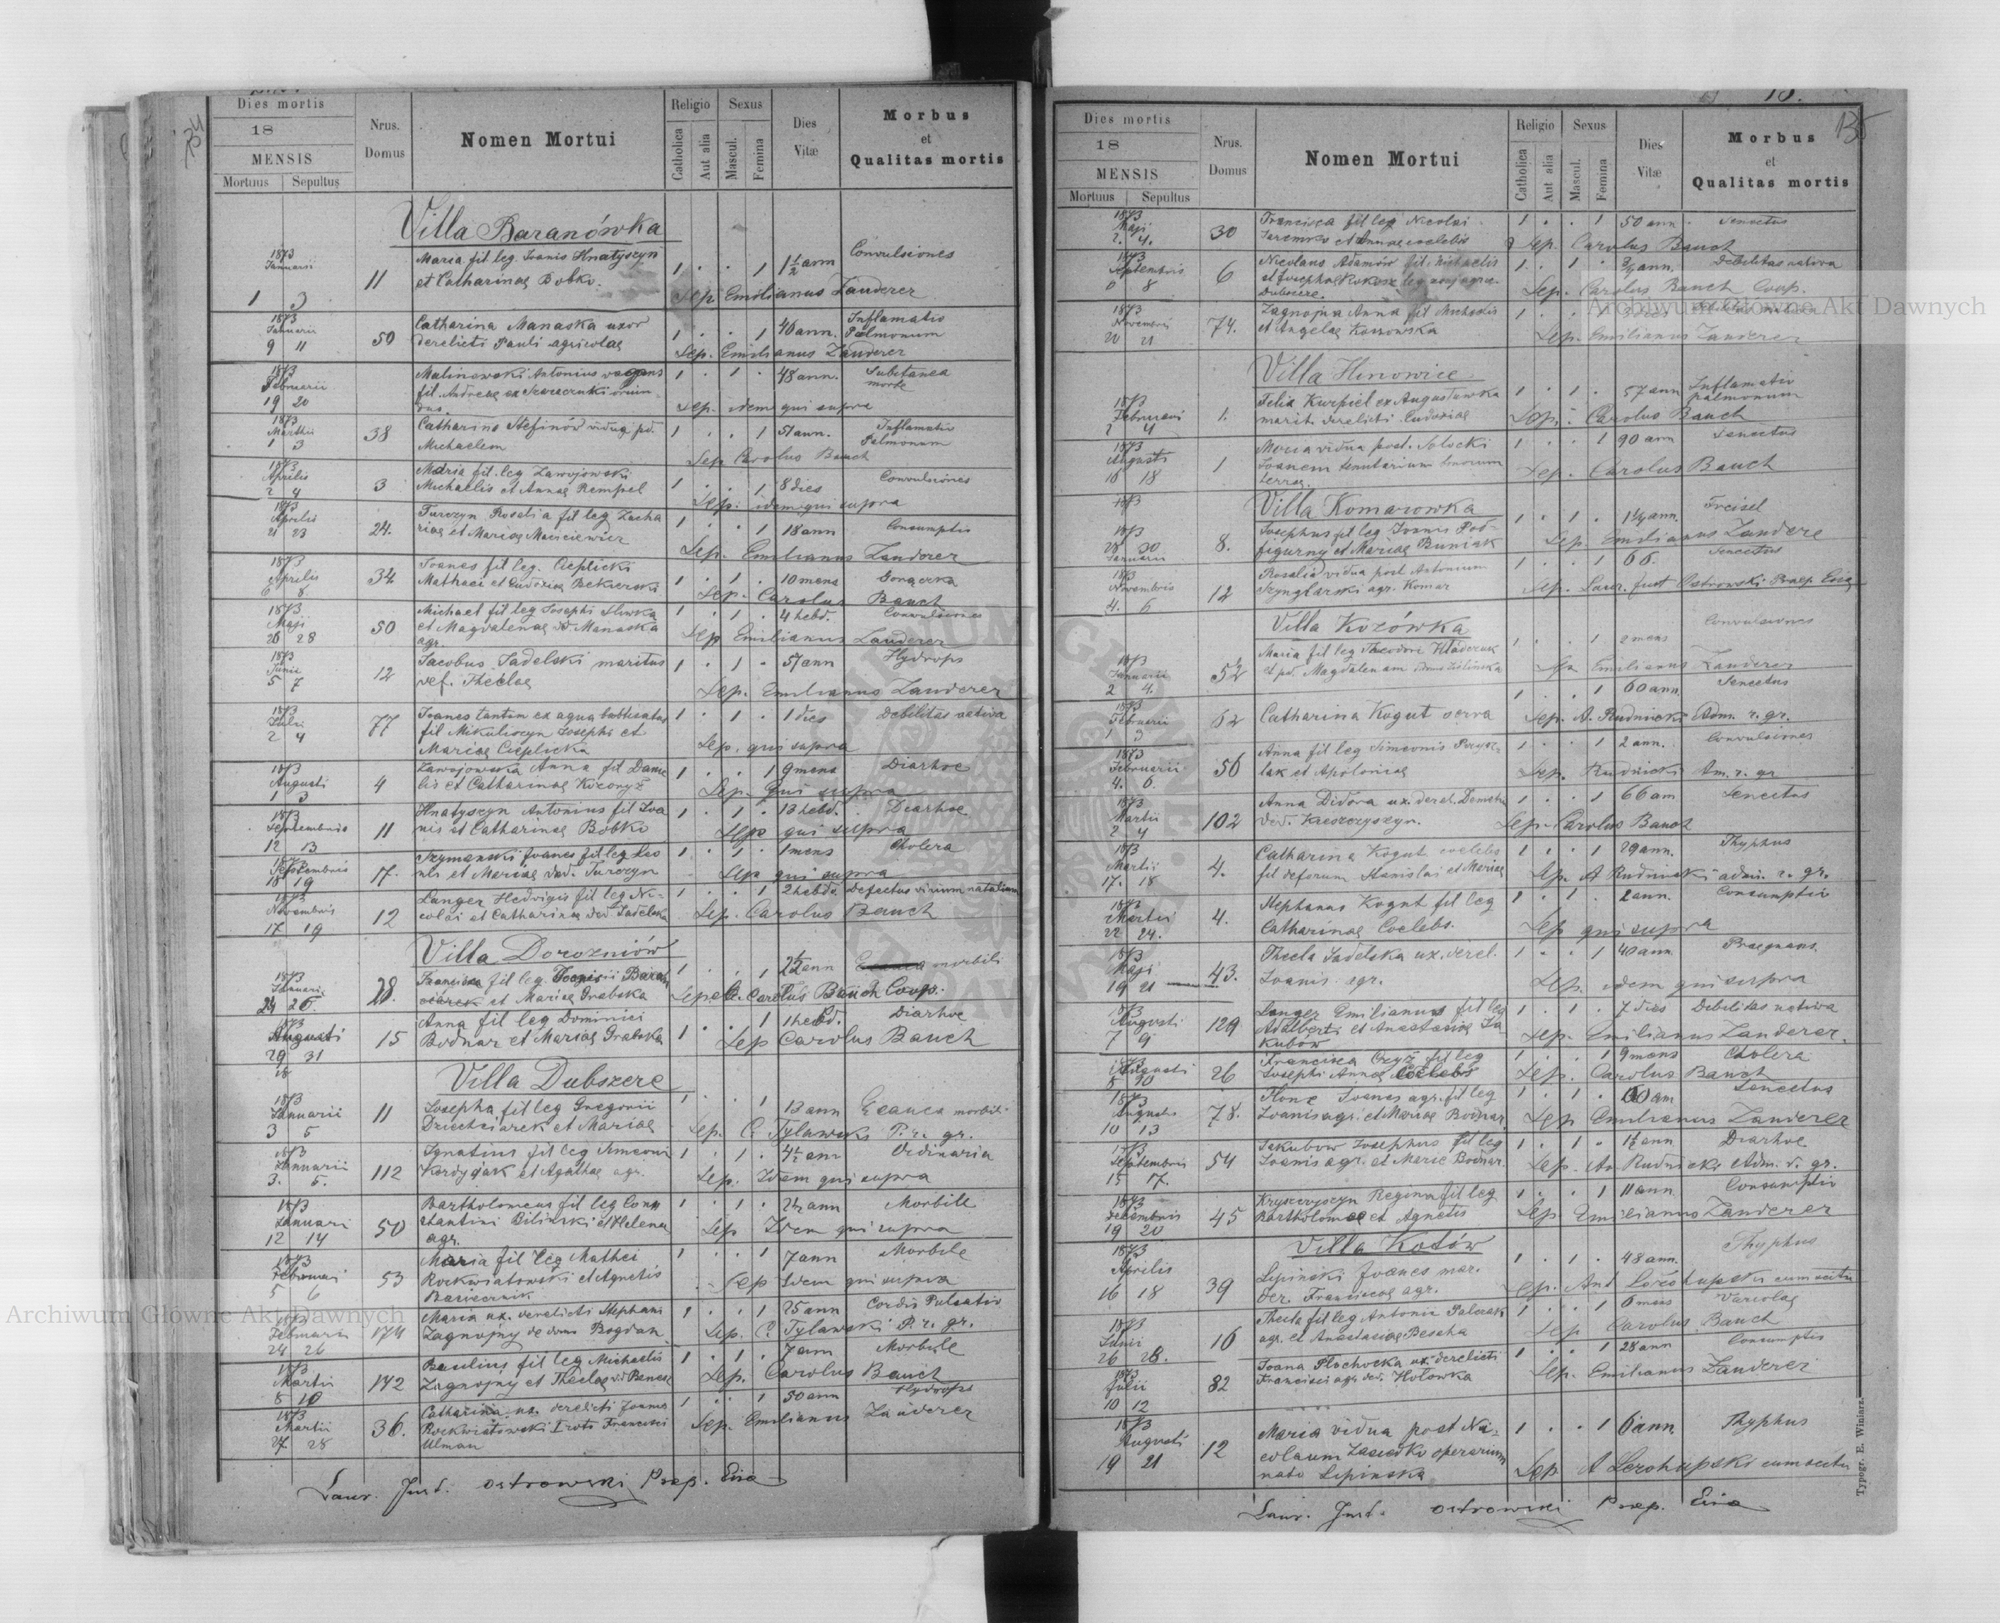 Dies mortis
18
MENSIS
Mortuus Sepultus
Nrus. Domus
Nomen Mortui
Religio
Catholica
Aut alia
Sexus
Mascul.
Femina
Dies Vitæ
Morbus et Qualitas mortis
Villa Baranówka
1873 Januarii 11 Maria fil leg Joanis Hnatyszyn 1 . . 1 1½ ann Convulsiones
1 3 et Catharinae Bobko. Sep Emilianus Zauderer
1873 Januarii 50 Catharina Manaska uxor 1 . . 1 46 ann. Inflamatio Pulmonum
9 11 derelicti Pauli agricolae Sep. Emilianus Zauderer
1873 Februarii Malinowski Antonius vagans 1 . 1 . 48 ann. Subitanea morte
19 20 fil. Andreae ex Sep. idem qui supra
1873 Martii 38 Catharina Stefinów vidua pd. 1 . . 1 51 ann. Inflamatio Pulmonum
1 3 Michaelem Sep Carolus Bauch
1873 Aprilis 3 Maria fil. leg Zawojowski 1 . . 1 8 dies Convulsiones
2 4 Michaelis et Annae Rempel Sep. idem qui supra
1873 Aprilis 24. Turczyn Rosalia fil leg Zacha 1 . . 1 18 ann Consumptio
21 23 riae et Mariae Maciewicz Sep. Emilianus Zauderer
1873 Aprilis 34 Joanes fil leg. Cieplicki 1 . 1 . 10 mens
6 8 Mathaei et Eudoxiae Bekierski Sep. Carolus Bauch
1873 Maji 50 Michael fil leg Josephi Sliwka 1 . 1 . 4 hebd. Convulsiones
26 28 et Magdalenae de Manaska agr. Sep Emilianus Zauderer
1873 Junii 12 Jacobus Sadelski maritus 1 . 1 . 57 ann Hydrops
5 7 def. Theclae Sep. Emilianus Zauderer
1873 Julii 77 Joanes tantum ex aqua babtisatus 1 . 1 . 1 dies Debilitas nativa
2 4 fil Mikuliczyn Josephi et Mariae Cieplicka Sep. qui supra
1873 Augusti 4 Zawojowska Anna fil Danie 1 . . 1 9 mens Diarhoe
1 3 lis et Catharinae Sep. qui supra
1873 Septembris 11 Hnatyszyn Antonius fil Joa 1 . 1 . 13 hebd. Diarhoe
12 13 nis et Catharinae Bobko Sep qui supra
1873 Septembris 17. Szymanski Joanes fil leg Leo 1 . 1 . 1 mens Cholera
18 19 nis et Mariae de Turczyn Sep qui supra
1873 Novembris 12 Langer Hedvigis fil leg Ni- 1 . . 1 2 hebda Defectus virium natalium
17 19 colai et Catharinae de Sadelska Sep. Carolus Bauch
Villa Dorozniów
1873 Januarii 28. Francisca fil leg 1 . . 1 2½ ann morbili
24 26. et Mariae Grabska Sep. Carolus Bauch Coop.
1873 Augusti 15 Anna fil leg Dominici 1 . . 1 1 hebd. Diarhoe
29 31 Bodnar et Mariae Grabska Sep Carolus Bauch
18 Villa Dubszcze
1873 Januarii 11 Josepha fil leg Gregorii 1 . . 1 13 ann morbili
3 5 Dziechciarek et Mariae Sep. C. Tylawski P. r. gr.
1873 Januarii 112 Ignatius fil leg Simeoni 1 . 1 . 4½ ann Ordinaria
3. 5. Kordyjak et Agathae agr. Sep. Idem qui supra
1873 Januari 50 Bartholomeus fil leg Cons 1 . 1 . 2½ ann Morbile
12 14 tantini Bilinski et Helenae agr. Sep Idem qui supra
1873 Februari 53 Maria fil leg Mathei 1 . . 1 7 ann Morbile
5 6 Rockwiatowski et Agnetis Sep Idem qui supra
1873 Februarii 174 Maria ux. derelicti Stephani 1 . . 1 25 ann Cordis Pulsatio
24 26 Zagnojny de domo Bogdan Sep. C. Tylawski P. r. gr.
1873 Martii 142 Paulius fil leg Michaelis 1 . 1 . 7 ann Morbile
8 10 Zagnojny et Theclae Sep. Carolus Bauch
1873 Martii 36. Catharina ux. derelicti Joannis 1 . . 1 50 ann Hydrops
27 28 Rockwiatowski I voto Francisci Ulman Sep. Emilianus Zauderer
Laur. Just. Ostrowski Praep. Exia
135
Dies mortis
18
MENSIS
Mortuus Sepultus
Nrus. Domus
Nomen Mortui
Religio
Catholica
Aut alia
Sexus
Mascul.
Femina
Dies Vitæ
Morbus et Qualitas mortis
1873 Maji 30 Francisca fil leg Nicolai 1 . . 1 50 ann. Senectus
2. 4. Jaremko et Annae coelebs Sep. Carolus Bauch
1873 Septembris 6 Nicolaus Adamów fil Michaelis 1 . 1 . ¾ ann. Debilitas nativa
6 8 et Josepha Kokosz Dubszcze. Sep. Carolus Bauch Coop.
1873 Novembris 74. Zagnojna Anna fil Michaelis 1 . . 1
20 21 et Angelae Kossowska Sep. Emilianus Zauderer
Villa Hinowice
1873 Februarii 1. Felix Kurpiel ex Augustowka 1 . 1 . 57 ann Inflamatio pulmonum
2 4 marit. derelicti Eudoxiae Sep. Carolus Bauch
1873 Augusti 1 Maria vidua post. Solocki 1 . . 1 90 ann Senectus
16 18 Joanem Sep. Carolus Bauch
1873 Villa Komarowka
1873 28 30 Januarii 8. Josephus fil leg Joanis Pod- 1 . 1 . 1¼ ann. Freisel
figurny et Mariae Buniak Sep. Emilianus Zaudere
1873 Novembris 12 Rosalia vidua post Antonium 1 . . 1 66. Senectus
4. 6 Szynglarski agr. Komar Sep. Laur. Just Ostrowski Praep Exia
Villa Kozówka
1873 Januarii 52 Maria fil leg Theodori Hladczuk 1 . . 1 2 mens Convulsiones
2 4. et pd. Magdalenam Sep Emilianus Zauderer
1873 Februarii 62 Catharina Kogut serva 1 . . 1 60 ann. Senectus
1 3 Sep. A. Rudnicki Adm. r. gr.
1873 Februarii 56 Anna fil leg Simeonis 1 . . 1 2 ann. Convulsiones
4. 6 et Apoloniae Sep. Rudnicki Am. r. gr
1873 Martii 102 Anna Didora ux. derel. Demetri 1 . . 1 66 am Senectus
2 4 Sep. Carolus Bauch
1873 Martii 4. Catharina Kogut coelebs 1 . . 1 29 ann. Thyphus
17. 18 fil deforum Stanislai et Mariae Sep. A Rudnicki admi. r. gr.
1873 Martii 4. Stephanus Kogut fil leg 1 . 1 . 2 ann. Consumptio
22 24. Catharinae Coelebs. Sep qui supra
1873 Maji 43. Thecla Sadelska ux. derel. 1 . . 1 40 ann Praegnans.
19 21 Joanis agr. Sep. idem qui supra
1873 Augusti 129 Langer Emilianus fil leg 1 . 1 . 7 dies Debilitas nativa
7 9 Adalberti et Anastasiae Ja kubów Sep. Emilianus Zauderer.
Augusti 26 Francisca Czyż fil leg 1 . . 1 9 mens Cholera
8 10 Josephi Annae Coelebs Sep. Carolus Bauch
1873 Augusti 78. Hone Joanes agr. fil leg 1 . 1 . 60 am Senectus
10 13 Joanis agr. et Mariae Bodnar Sep Emilianus Zauderer
1873 Septembris 54 Jakubow Josephus fil leg 1 . 1 . 1½ ann Diarhoe
15 17. Joanis agr. et Marie Bodnar. Sep. An. Rudnicki Adm. r. gr.
1873 Decembris 45 Kryszczyszyn Regina fil leg 1 . . 1 11 ann Consumptio
19 20 Bartholomae et Agnetis Sep Emilianus Zauderer
Villa Kotów
1873 Aprilis 39 Lipinski Joanes mar. 1 . 1 . 48 ann. Thyphus
16 18 der. Franciscae agr. Sep.
1873 Junii 16 Thecla fil leg Antonii Palczak 1 . . 1 6 mens Variolae
26 28. agr. et Anastasiae Beseha Sep Carolus Bauch
1873 Julii 82 Joana Plachocka ux. derelicti 1 . . 1 28 ann Consumptio
10 12 Francisci agr. de Kotowka Sep. Emilianus Zauderer
1873 Augusti 12 Maria vidua post Ni- 1 . . 1 Thyphus
19 21 colaum operarium nata Lipinska Sep
Laur. Just. Ostrowski Praep. Exia
Typogr. E. Winiarz.
Archiwum Główne Akt Dawnych
Archiwum Główne Akt Dawnych